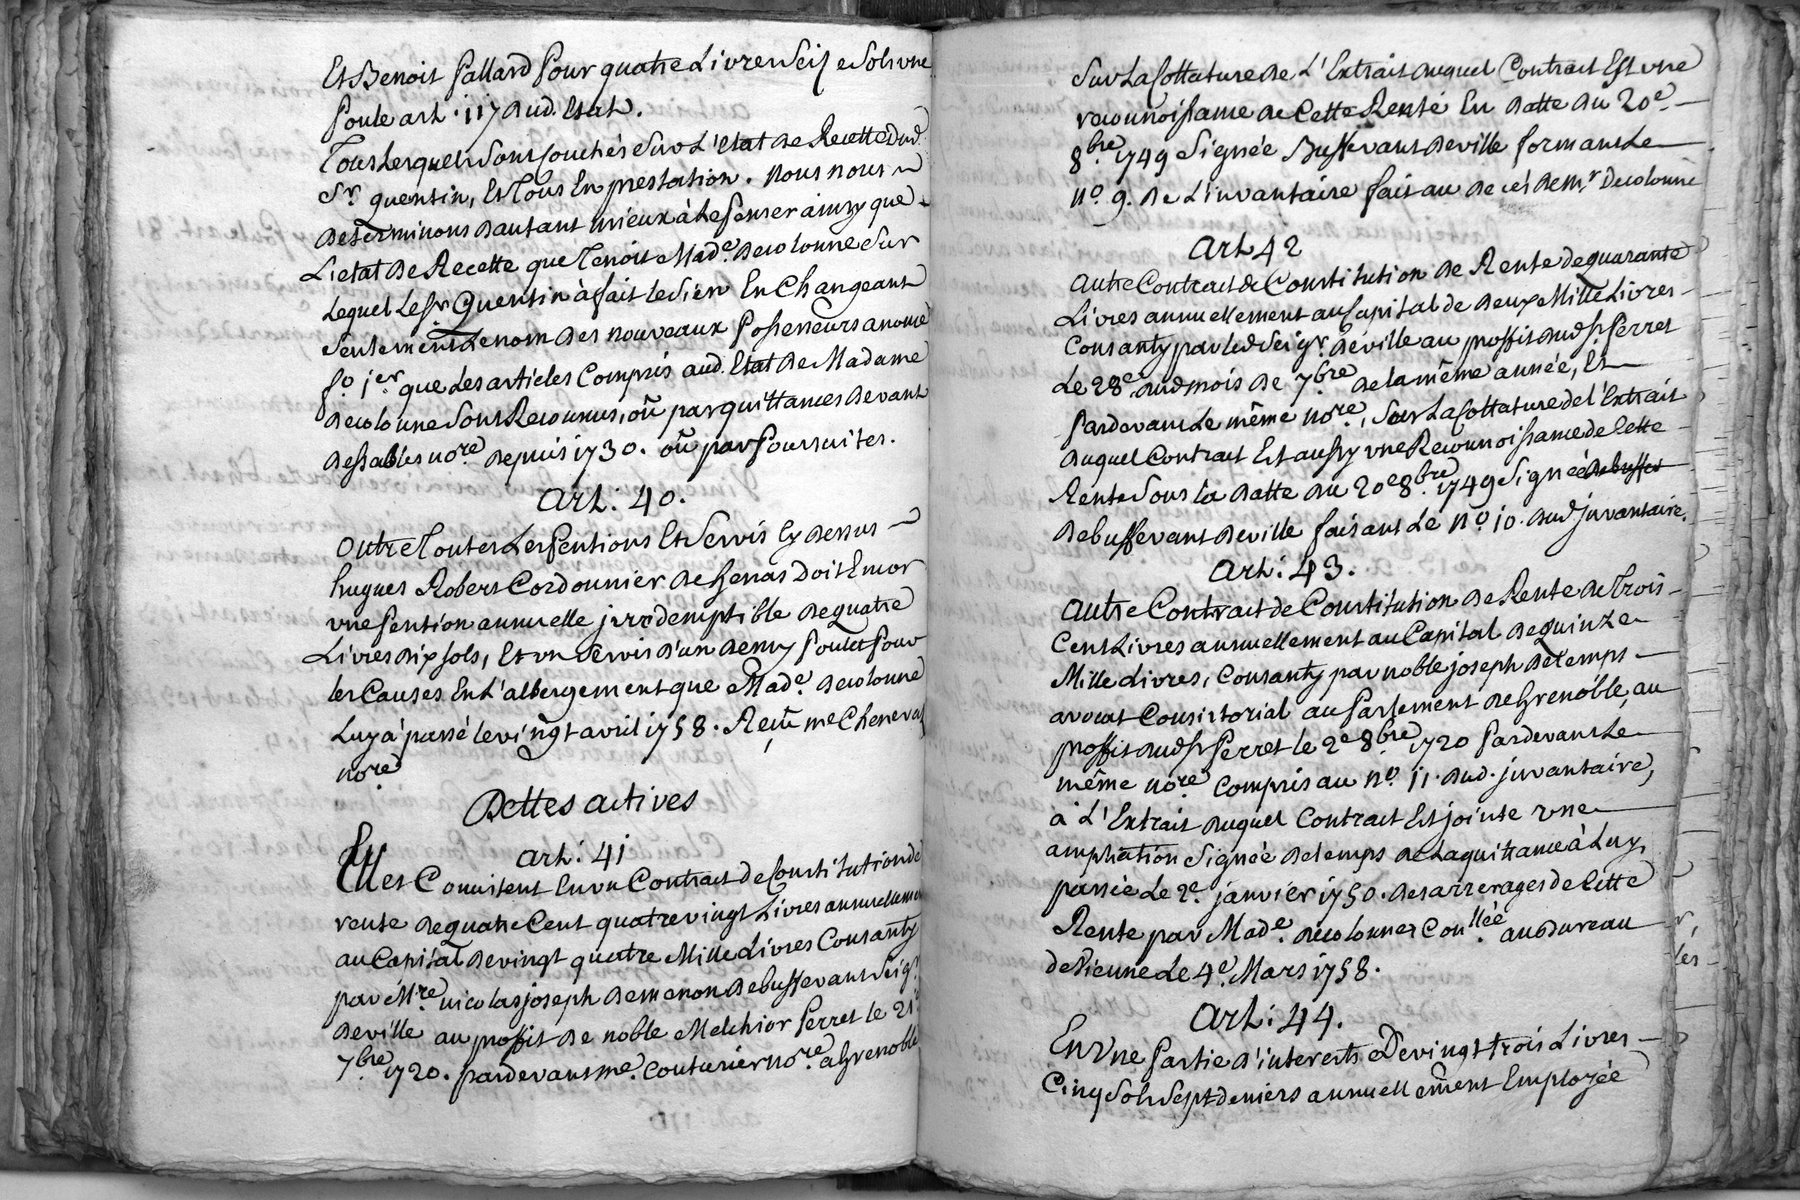 Et Benoit Gallard pour quatre Livres Seize sols une
poule art. 117 dud. Etat.
Tous lesquels sont couchés sur L'etat de Recette dud.
Sr. quentin, Et Tous En prestation. Nous nous
determinons dautant mieux à Le penser ainsy que
L'etat de Recette que Tenoit Made. decolonne sur
lequel Le Sr Quentin à fait le sien En Changeant
seulement Le nom des nouveaux possesseurs anonce
fo. 1er que Les articles Compris aud. Etat de Madame
decolonne sont Reconnus, où par quittances devant
desables nore depuis 1730. où par poursuites.
Art. 40.
Outre Toutes Les pentions Et servis Cy dessus
hugues Robert Cordonnier de henas Doit Encor
une pention annuelle jrredemptible de quatre
Livres dix sols, Et un servis d'un demy poulet pour
les Causes En L'albergement que Made. decolonne
Luy à passé le vingt avril 1758. Reçu me Cheneval
nore
Dettes actives
art. 41
Elles Consistent En un Contract de Constitution de
rente de quatre Cent quatre vingt Livres annuellement
au Capital de vingt quatre Mille Livres Consanty
par Mre nicolas joseph de menon de buffevant Seigr.
deville au proffit de noble Melchior perret le 21e
7bre 1720. pardevant me. Couturier nore. a Grenoble
Sur La Cottature de L'Extrait duquel Contract Est une
reconnoissance de Cette Rente En datte du 20e.
8bre 1749 Signée Buffevant deville formant Le
no. 9. de L'invantaire fait au deces de mr. Decolonne
Art. 42
autre Contract de Constitution de Rente de quarante
Livres annuellement au Capital de deux Mille Livres
Consanty par led Seigr. deville au proffit dud Sr perret
Le 28e dud mois de 7bre de la même année, Et
pardevant Le même nore, Sur La Cottature de l'Extrait
duquel Contract Est aussy une Reconnoissance de Cette
Rente sous la datte du 20e 8bre. 1749 Signée debuffev
debuffevant deville faisant Le no 10. dud jnvantaire.
Art. 43.
autre Contract de Constitution de Rente de Trois
Cent Livres annuellement au Capital de quinze
Mille Livres, Consanty par noble joseph detemps
avocat Consistorial au parlement de Grenoble, au
proffit dud Sr perret le 2e 8bre 1720 pardevant Le
même nore Compris au no. 11. dud. jnvantaire,
à L'Extrait duquel Contract Est jointe une
ampliation signée detemps de La quittance à Luy
passée Le 2e. janvier 1750. des arrerages de Cette
Rente par Made. decolonne Conllée au Bureau
de Vienne Le 4e. Mars 1758.
Art. 44.
En Une partie d'interests De vingt trois Livres
Cinq sols sept deniers annuellement Employée